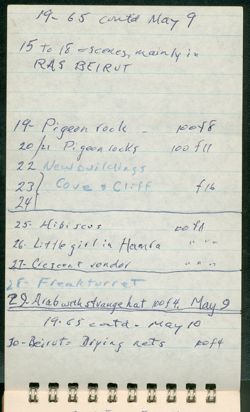 19-65 contd May 9
15 to 18 - scenes, mainly in
RAS BEIRUT
19- Pigeon rock - 100f8
20/21 Pigeon rocks 100 f11
22 New buildings
23 Cove & Cliff f16
24
25- Hibiscus f8
26- Little girl in Hamra " " "
27- Crescent vendor " " "
28- Freak turret
29- Arab with strange hat 100f4. May 9
19-65 contd - May 10
30- Beirut Drying nets f4